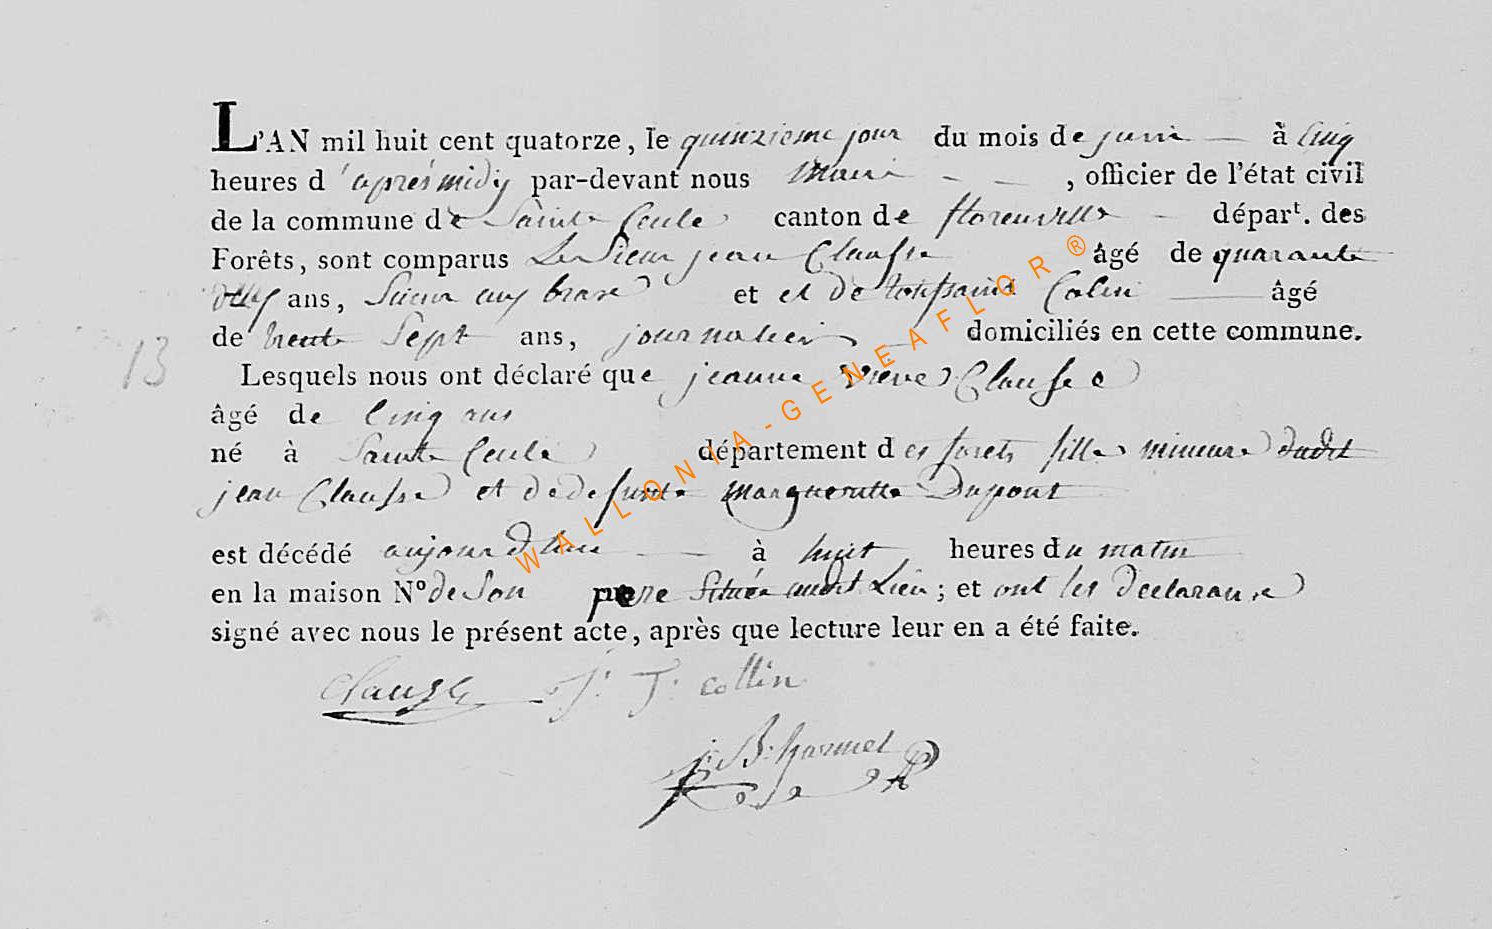 L'AN mil huit cent quatorze, le quinzieme jour du mois de juin — à Cinq
heures d'après midy par-devant nous Maire - - , officier de l'état civil
de la commune de Sainte Cecile canton de florenville - départ. des
Forêts, sont comparus Le Sieur jean Clausse âgé de quarante
deux ans, Sieur aux bras et et de toussaint Colin — âgé
de trente Sept ans, journalier — domiciliés en cette commune.
13
Lesquels nous ont déclaré que jeanne Clausse
âgé de Cinq ans
né à Sainte Cecile département des forets fille mineure dudit
jean Clausse et de defunte Margueritte Dupont
est décédé aujourdhui — à huit heures du matin
en la maison N° de Son pere Située audit Lieu ; et ont les declarans
signé avec nous le présent acte, après que lecture leur en a été faite.
Clausse J: T: collin
j: B: harmel
WALLONIA-GENEAFLOR®